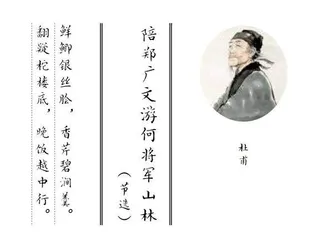 杜甫
陪郑广文游何将军山林
（节选）
鲜鲫银丝脍，香芹碧涧羹。
翻疑柁楼底，晚饭越中行。